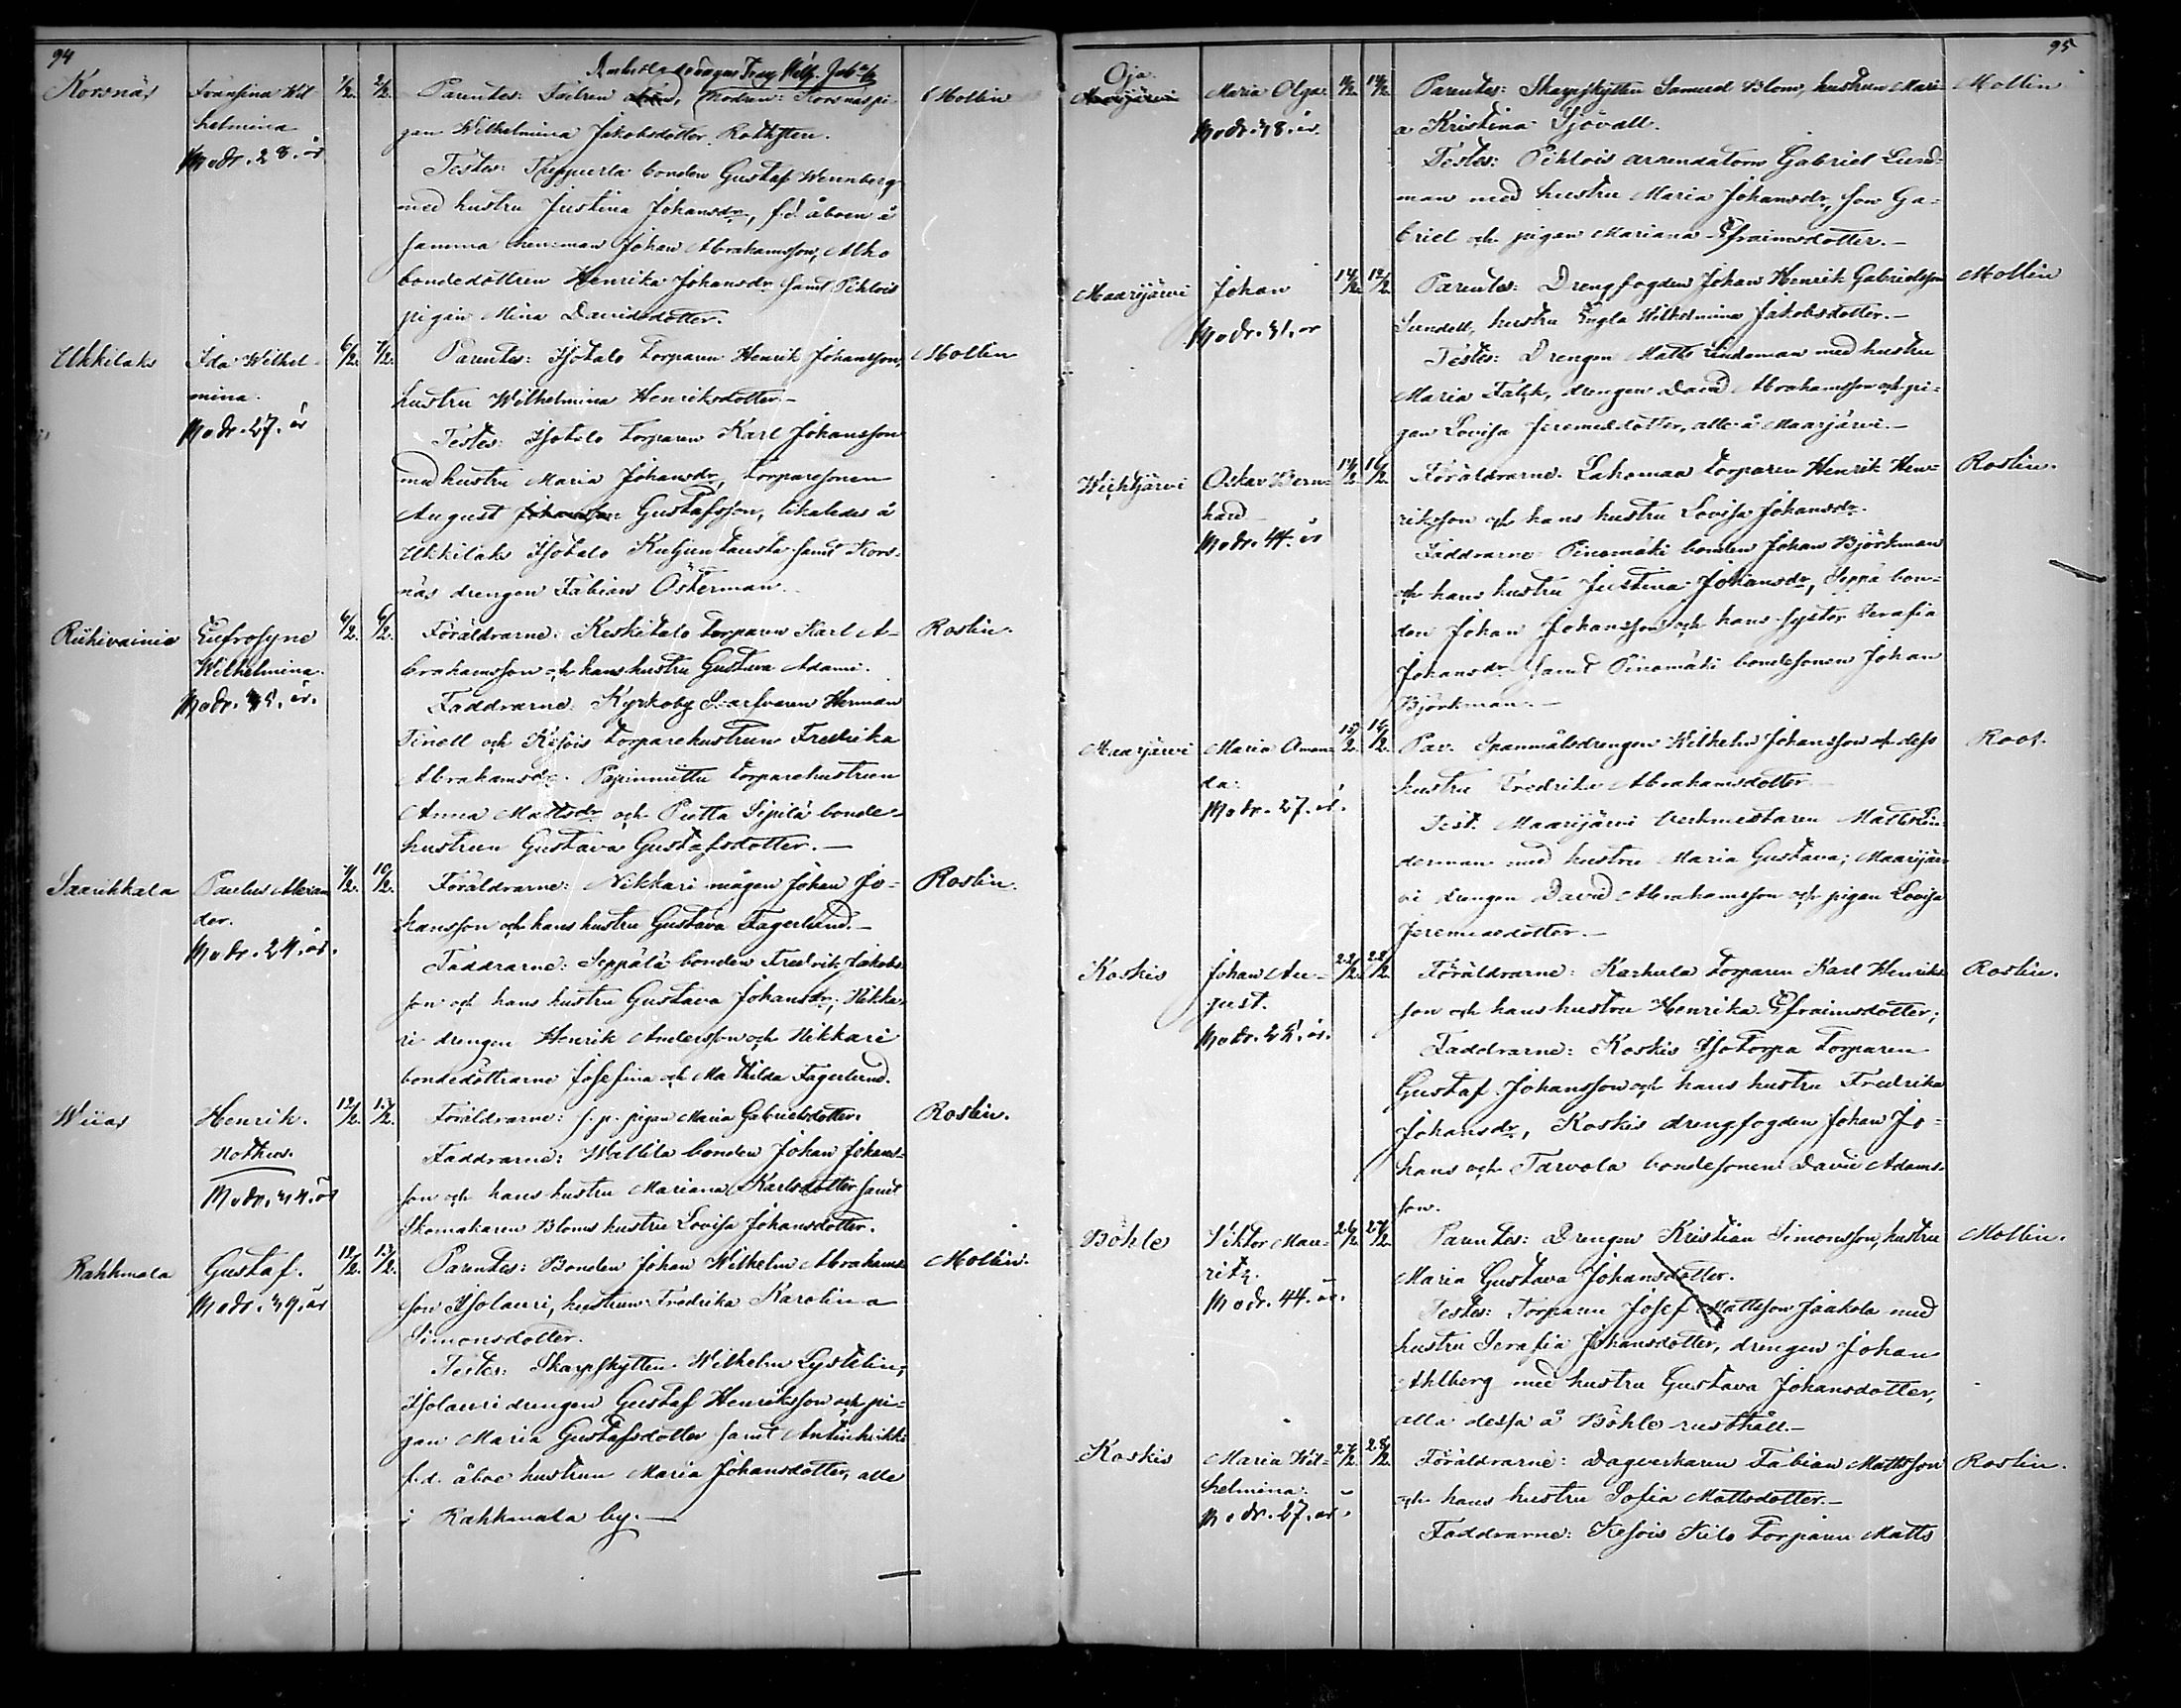 94
Korsnäs Fransina Wil 1/2. 2/2. Parentes: Fadren Modren: Korsnäs pi- Mollin
helmina gan Wilhelmina Jakobsdotter
Modr. 28. år
Testes: bonden Gustaf Wennberg
med hustru Justina Johansdr, f.d. åboen å
samma hemman Johan Abrahamsson, Alho
bondedottren Henrika Johansdr samt Pihlois
pigan Mina Davidsdotter.
Ukkilaks Ida Wilhel- 6/2. 7/2. Parentes: Isotalo torparen Henrik Johansson, Mollin
mina. hustru Wilhelmina Henriksdotter.-
Modr. 27. år Testes: Isotalo torparen Karl Johansson
med hustru Maria Johansdr, torparesonen
August Gustafsson, likaledes å
Ukkilaks Isotalo samt Kors-
näs drengen Fabian Österman.
Riihivainio Eufrosyne 6/2. 6/2. Föräldrarne: Keskitalo torparen Karl A- Roslin.
Wilhelmina. brahamsson och hans hustru Gustava Adami.
Modr. 35. år. Faddrarne: Kyrkoby Skarfvaren Herman
Tinell och Kesois torparehustrun Fredrika
Abrahamsdr. torparehustrun
Anna Mattsdr och Pietta Sipilä bonde-
hustrun Gustava Gustafsdotter.—
Saarikkala Paulus Alexan 7/2. 10/2. Föräldrarne: Nikkari mågen Johan Jo- Roslin.
der. hansson och hans hustru Gustava Fagerlund.-
Modr. 24. år. Faddrarne: Seppälä bonden Fredrik Jakobs-
son och hans hustru Gustava Johansdr; Nikka-
ri drengen Henrik Andersson och Nikkari
bondedöttrarne Josefina och Mathilda Fagerlund.
Wiiar Henrik. 12/2. 13/2. Föräldrarne: s.p. pigan Maria Gabrielsdotter. Roslin.
Nothus. Faddrarne: Wallila bonden Johan Johans-
Modr. 34. år son och hans hustru Mariana Karlsdotter samt
Skomakaren Bloms hustru Lovisa Johansdotter.
Rahkmala Gustaf. 12/2. 13/2. Parentes: Bonden Johan Wilhelm Abrahams- Mollin.
Modr. 39. år son Isolauri, hustrun Fredrika Karolina
Simonsdotter.
Testes: Skarpskytten Wilhelm Lystelin,
Isolauri drengen Gustaf Henriksson och pi-
gan Maria Gustafsdotter samt Antinheikki
f.d. åboe hustrun Maria Johansdotter, alle
i Rahkmala by.—
95
Oja.
Maarijärvi Maria Olga. 14/2. Parentes: Skarpskytten Samuel Blom, hustrun Mari- Mollin
Modr. 38. år. a Kristina Sjövall.
Testes: Pihlois arrendatorn Gabriel Lund-
man med hustru Maria Johansdr, son Ga-
briel och pigan Mariana Efraimsdotter.—
Maarijärvi Johan 14/2. Parentes: Drengfogden Johan Henrik Gabrielsson Mollin
Modr. 31. år Sundell, hustru Engla Wilhelmina Jakobsdotter.—
Testes: Drengen Matts Lindeman med hustru
Maria Falck, drengen David Abrahamsson och pi-
gan Lovisa Jeremiedotter, alle å Maarijärvi.—
Wichtjärvi Oskar Bern- 14/2. 16/2. Föräldrarne: Lahomaa torparen Henrik Hen- Roslin.
hard riksson och hans hustru Lovisa Johansdr.
Modr. 44. år Faddrarne: Pinomäki bonden Johan Björkman
och hans hustru Justina Johansdr, Seppä bon-
den Johan Johansson och hans syster Serafia
Johansdr samt Pinomäki bondesonen Johan
Björkman.—
Maarijärvi Maria Aman- 15/2. 16/2. Par. Spanmålsdrengen Wilhelm Johansson och dess Roos.
da. hustru Fredrika Abrahamsdotter
Modr. 27. år. Test. Maarijärvi Verkmestaren Matts Lin-
derman med hustru Maria Gustava; Maarijär-
vi drengen David Abrahamsson och pigan Lovisa
Jeremiedotter.—
Koskis Johan Au- 22/2. 22/2. Föräldrarne: Karhula torparen Karl Henriks- Roslin.
gust. son och hans hustru Henrika Efraimsdotter;
Modr. år. Faddrarne: Koskis Isotorpa torparen
Gustaf Johansson och hans hustru Fredrika
Johansdr, Koskis drengfogden Johan Jo-
hans och Tarvola bondesonen David Adams-
son.
Böhle Viktor Mau- 26/2. 27/2. Parentes: Drengen Kristian Simonsson, hustru Mollin.
ritz. Maria Gustava Johansdotter.
Modr. 44. år. Testes: Torparen Josef Mattsson Jaakola med
hustru Serafia Johansdotter, drengen Johan
Ahlberg med hustru Gustava Johansdotter,
alla dessa å Böhle rusthåll.—
Koskis Maria Wil- 27/2. 28/2. Föräldrarne: Dagverkaren Fabian Mattsson Roslin.
helmina. och hans hustru Sofia Mattsdotter.—
Modr. 27. år. Faddrarne: Kesois Kilo torparen Matts